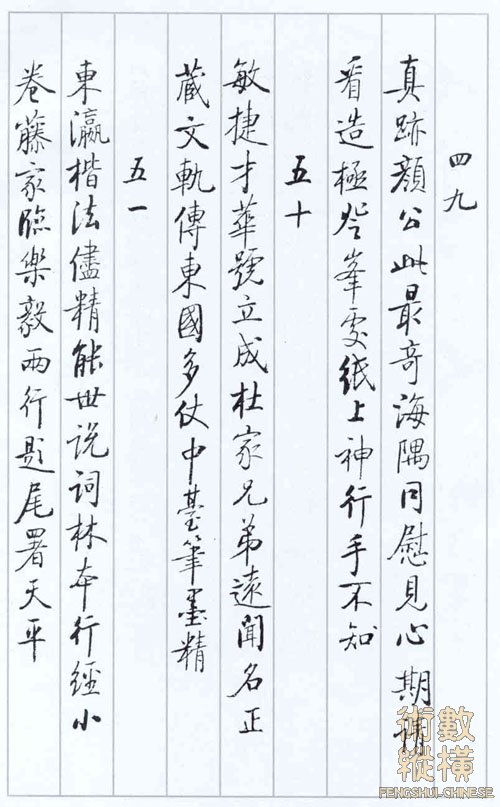 四九
真跡顏公此最奇海隅同慰見心期請
看造極登峯處紙上神行手不知
五十
敏捷才華號立成杜家兄弟遠聞名正
藏文軌傳東國多仗中臺筆墨精
五一
東瀛楷法儘精能世說詞林本行經小
卷藤家臨樂毅兩行題尾署天平
術數
縱橫
FENGSHUI-CHINESE